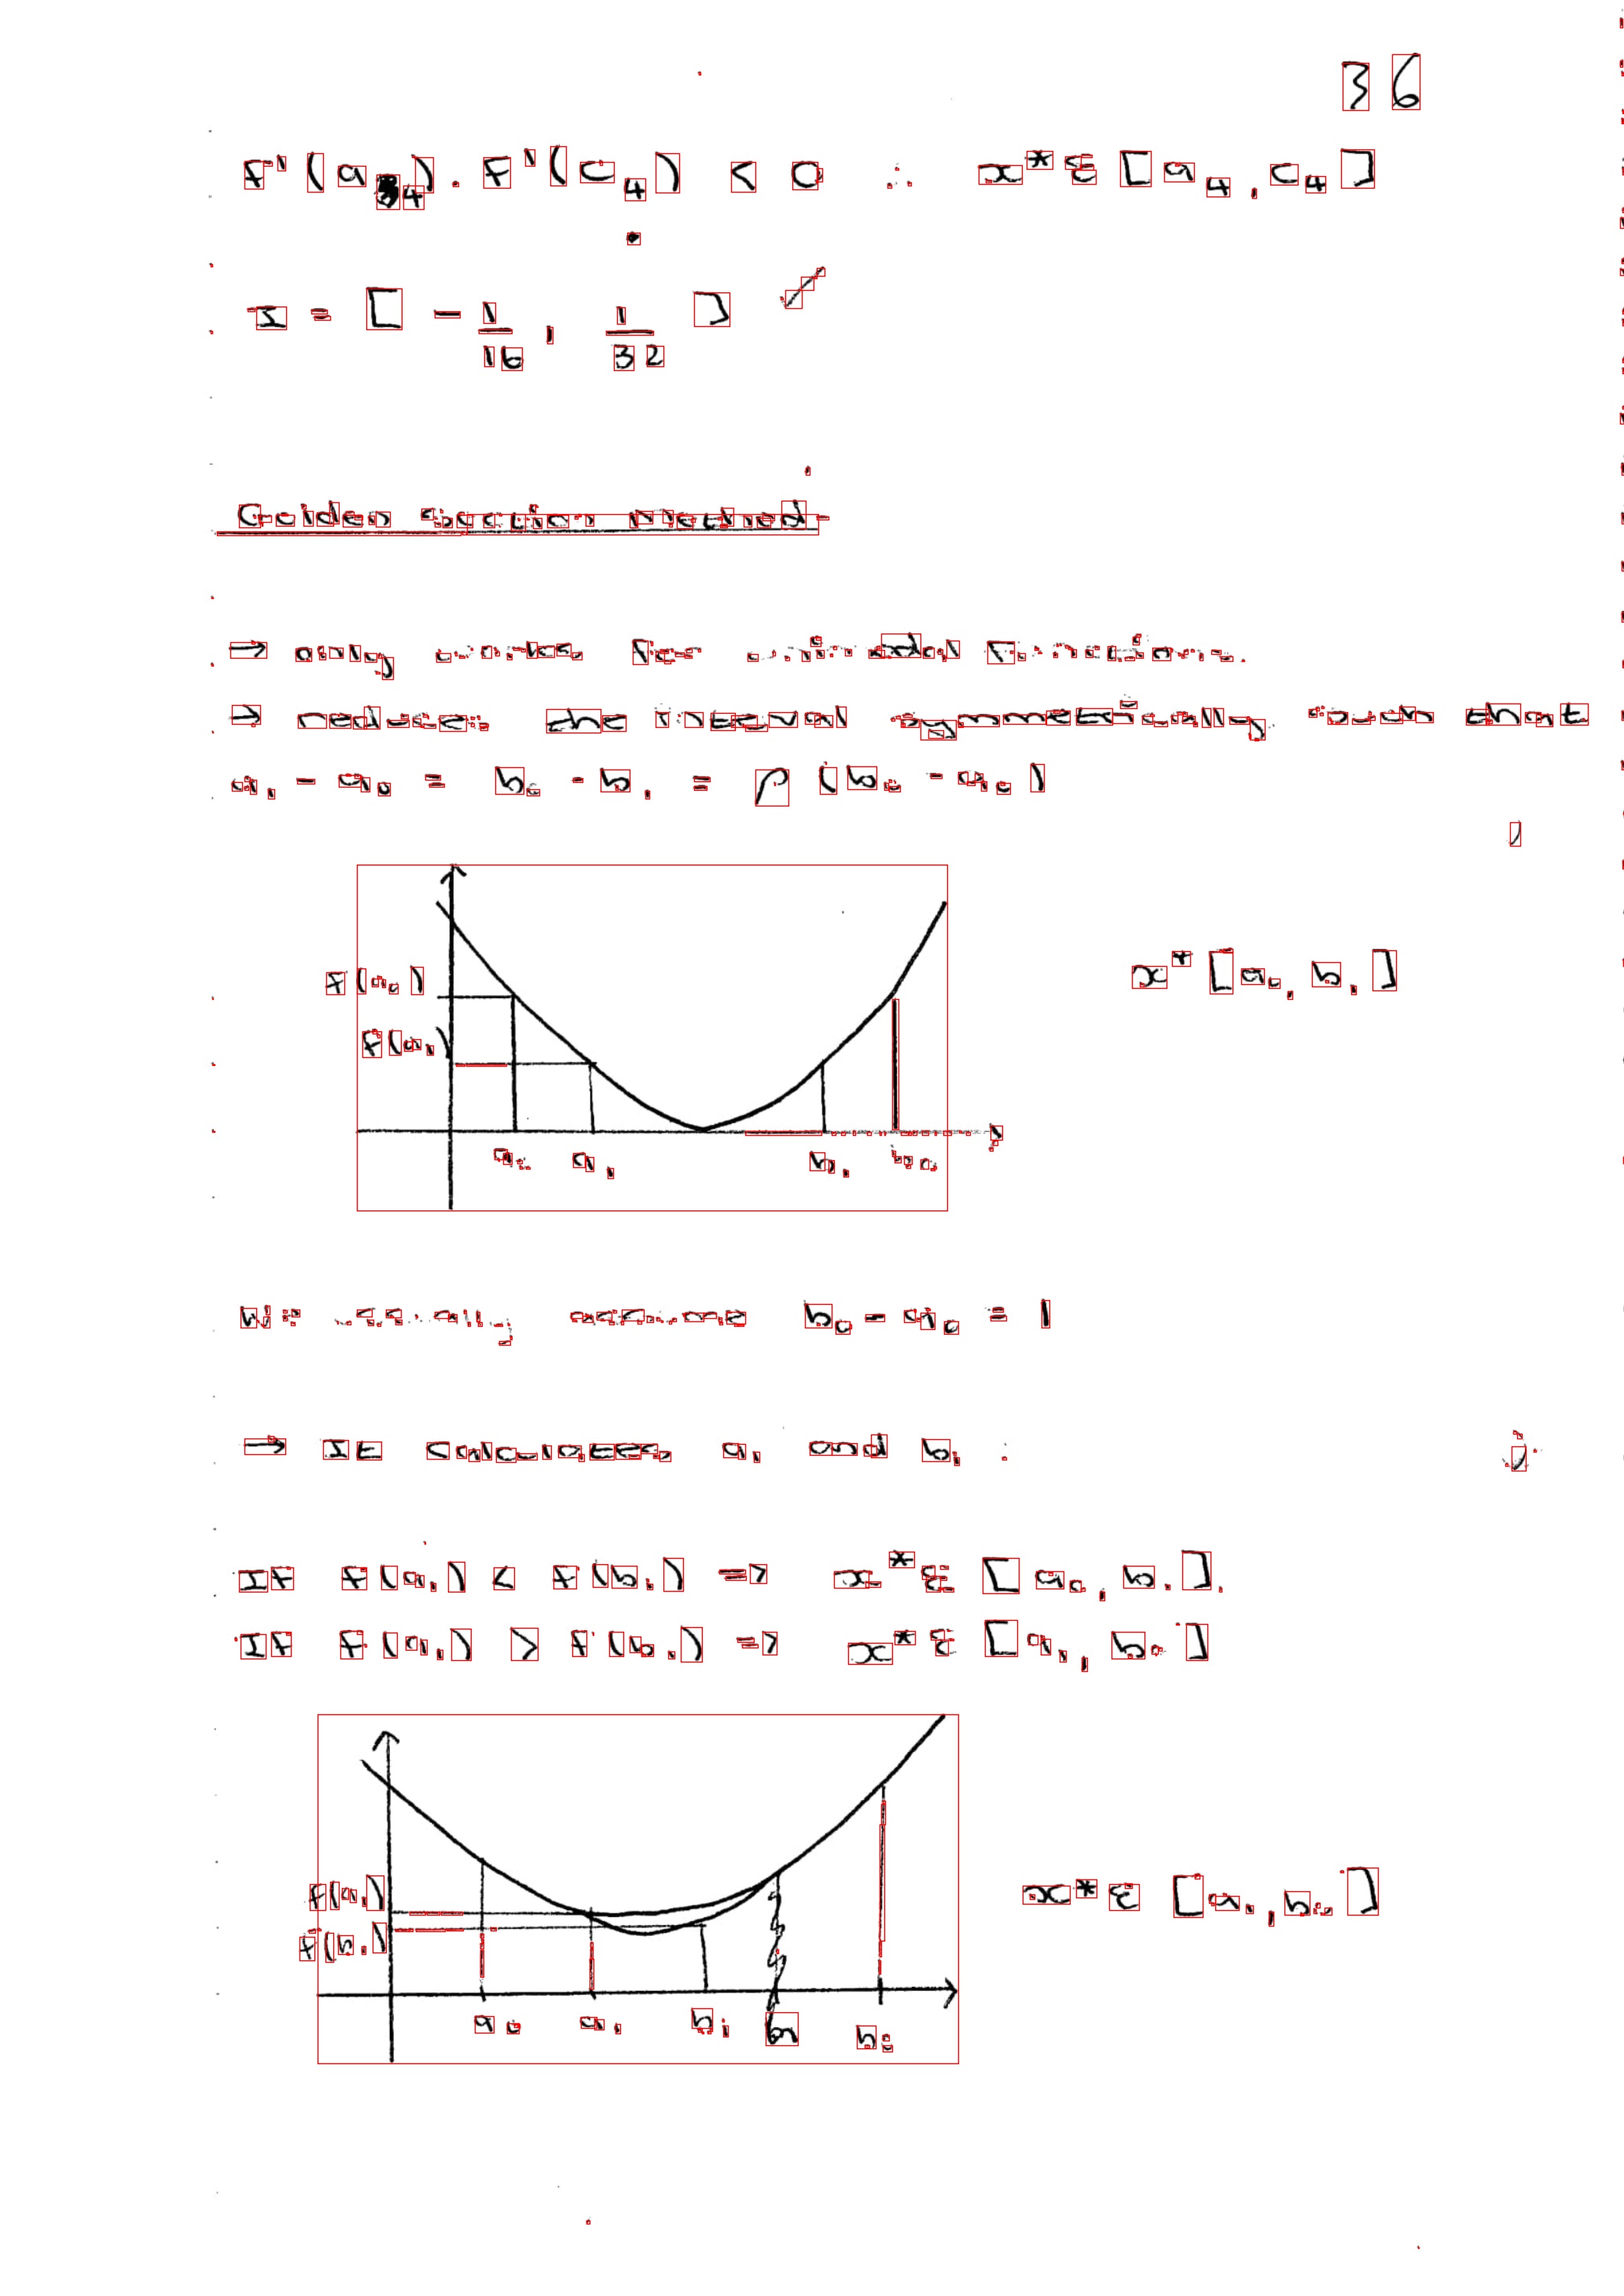 36
f'(a₄) . f'(c₄) < 0 ∴ x* ∈ [a₄, c₄]
I = [ -1/16 , 1/32 ]
Golden section method
→ only works for unimodal functions.
→ reduces the interval symmetrically such that
a₁ - a₀ = b₀ - b₁ = ρ (b₀ - a₀)
f(a₀)
x* [a₀, b₁]
f(a₁)
a₀ a₁ b₁ b₀
We usually assume b₀ - a₀ = 1
→ It calculates a₁ and b₁ :
If f(a₁) < f(b₁) => x* ∈ [a₀, b₁].
If f(a₁) > f(b₁) => x* ∈ [a₁, b₀]
f(a₁)
x* ∈ [a₁, b₀]
f(b₁)
a₀ a₁ b₁ b₀